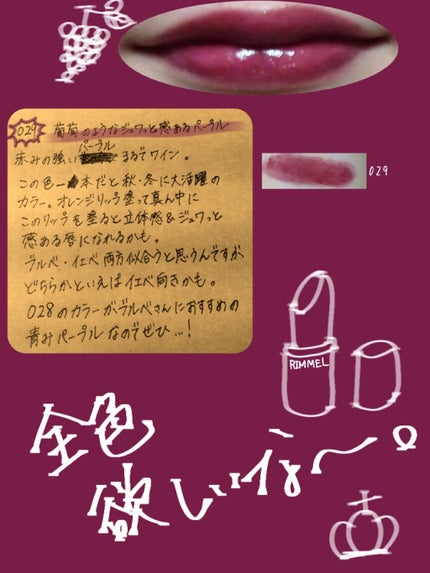 029 葡萄のようなジュワッと感あるパープル
赤みの強いパープル まるでワイン。
この色一本だと秋・冬に大活躍の
カラー。オレンジリップ塗って真ん中に
このリップを塗ると立体感&ジュワッと
感ある唇になれるかも。
ブルベ・イエベ両方似合うと思うんですが
どちらかといえばイエベ向きかも。
028のカラーがブルベさんにおすすめの
青みパープルなのでぜひ…!
029
RIMMEL
全色
欲しいな〜。